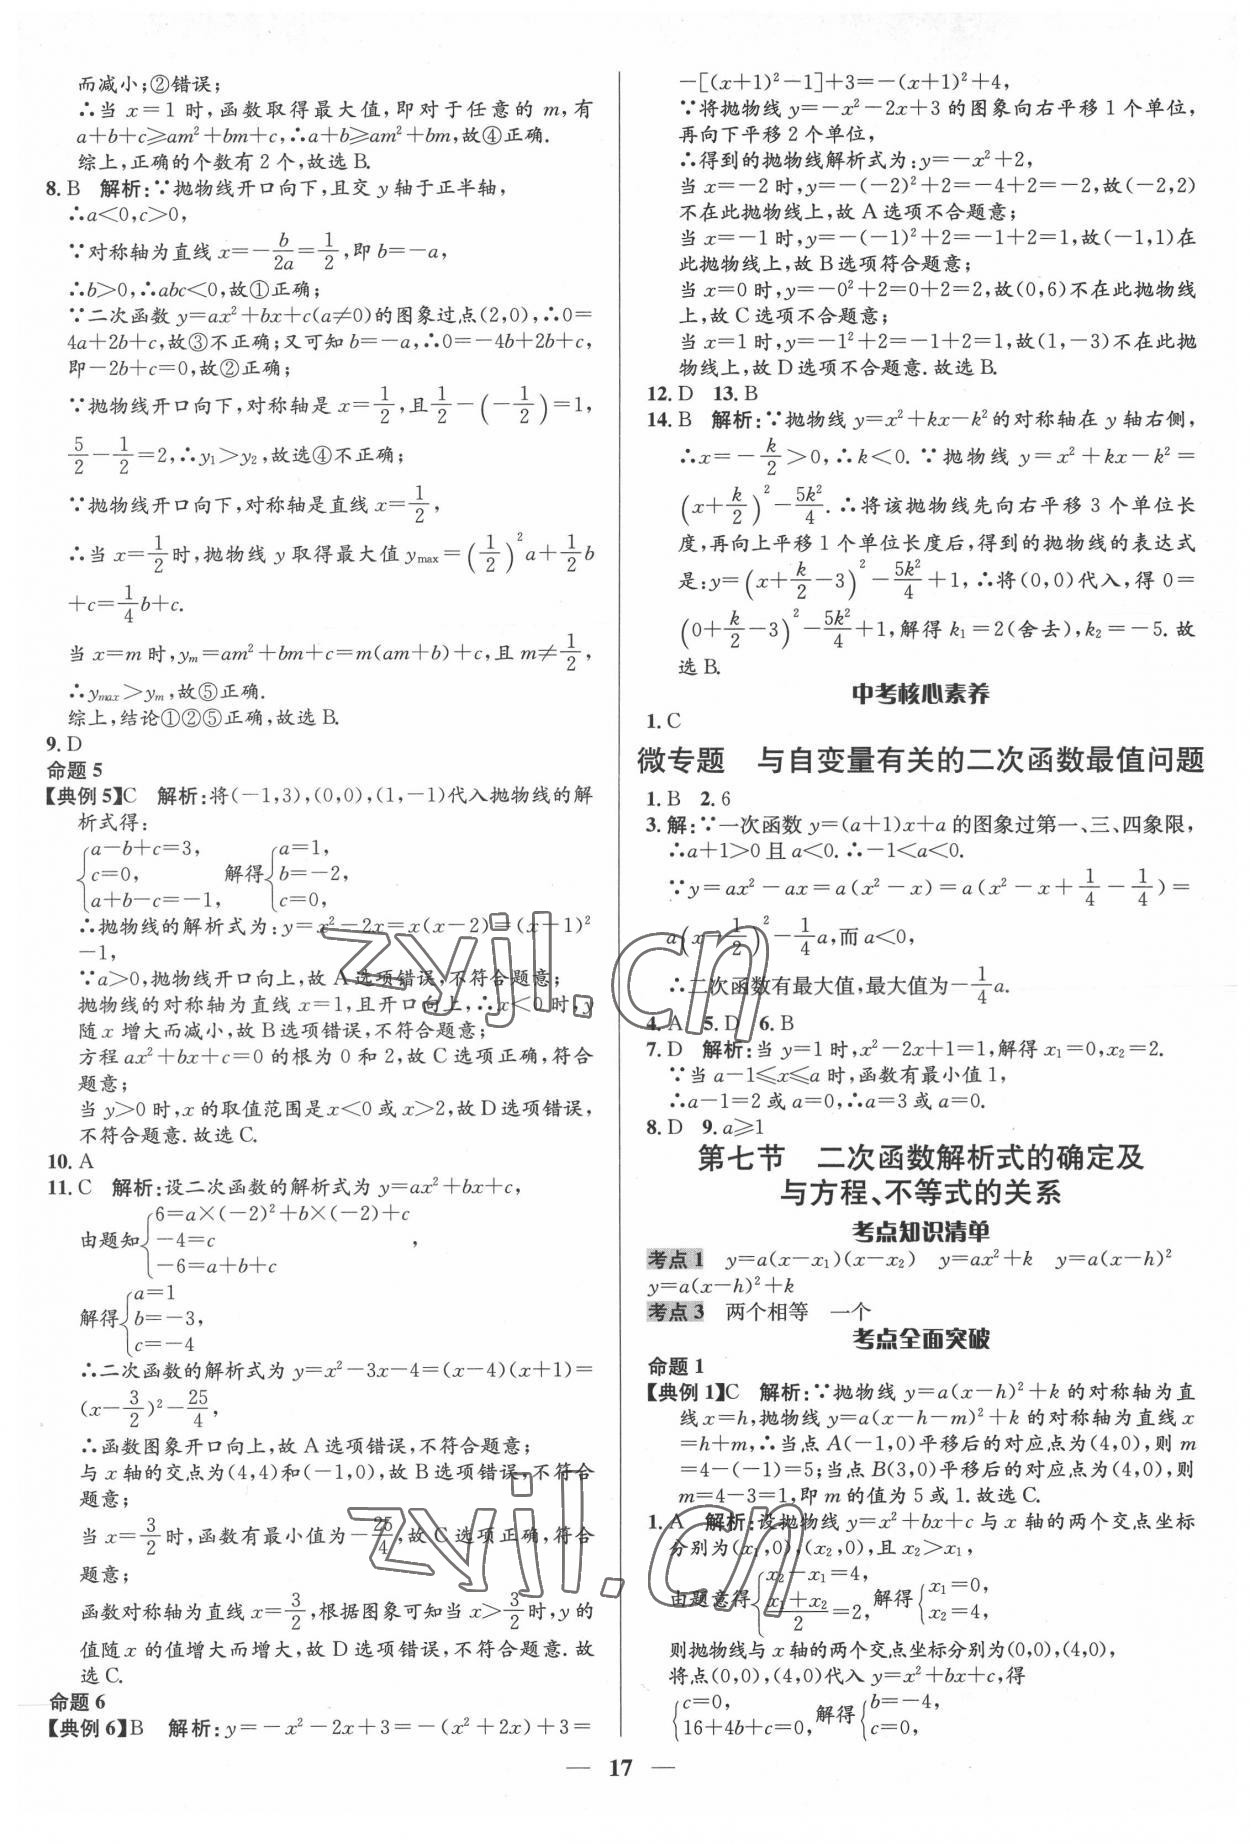 而减小;②错误;
∴当 x=1 时,函数取得最大值,即对于任意的 m,有
a+b+c≥am²+bm+c,∴a+b≥am²+bm,故④正确.
综上,正确的个数有 2 个,故选 B.
8. B 解析:∵抛物线开口向下,且交 y 轴于正半轴,
∴a<0,c>0,
∵对称轴为直线 x=-b/2a=1/2,即 b=-a,
∴b>0,∴abc<0,故①正确;
∵二次函数 y=ax²+bx+c(a≠0)的图象过点(2,0),∴0=
4a+2b+c,故③不正确;又可知 b=-a,∴0=-4b+2b+c,
即-2b+c=0,故②正确;
∵抛物线开口向下,对称轴是 x=1/2,且1/2-(-1/2)=1,
5/2-1/2=2,∴y₁>y₂,故选④不正确;
∵抛物线开口向下,对称轴是直线 x=1/2,
∴当 x=1/2时,抛物线 y 取得最大值 ymax=(1/2)²a+1/2b
+c=1/4b+c.
当 x=m 时,yₘ=am²+bm+c=m(am+b)+c,且 m≠1/2,
∴ymax>yₘ,故⑤正确.
综上,结论①②⑤正确,故选 B.
9. D
命题 5
【典例 5】C 解析:将(-1,3),(0,0),(1,-1)代入抛物线的解
析式得:
{a-b+c=3, c=0, a+b-c=-1, 解得{a=1, b=-2, c=0,
∴抛物线的解析式为:y=x²-2x=x(x-2)=(x-1)²
-1,
∵a>0,抛物线开口向上,故 A 选项错误,不符合题意;
抛物线的对称轴为直线 x=1,且开口向上,∴x<0 时,y
随 x 增大而减小,故 B 选项错误,不符合题意;
方程 ax²+bx+c=0 的根为 0 和 2,故 C 选项正确,符合
题意;
当 y>0 时,x 的取值范围是 x<0 或 x>2,故 D 选项错误,
不符合题意.故选 C.
10. A
11. C 解析:设二次函数的解析式为 y=ax²+bx+c,
由题知{6=a×(-2)²+b×(-2)+c -4=c -6=a+b+c ,
解得{a=1 b=-3, c=-4
∴二次函数的解析式为 y=x²-3x-4=(x-4)(x+1)=
(x-3/2)²-25/4,
∴函数图象开口向上,故 A 选项错误,不符合题意;
与 x 轴的交点为(4,4)和(-1,0),故 B 选项错误,不符合
题意;
当 x=3/2时,函数有最小值为-25/4,故 C 选项正确,符合
题意;
函数对称轴为直线 x=3/2,根据图象可知当 x>3/2时,y 的
值随 x 的值增大而增大,故 D 选项错误,不符合题意.故
选 C.
命题 6
【典例 6】B 解析:y=-x²-2x+3=-(x²+2x)+3=
-[(x+1)²-1]+3=-(x+1)²+4,
∵将抛物线 y=-x²-2x+3 的图象向右平移 1 个单位,
再向下平移 2 个单位,
∴得到的抛物线解析式为:y=-x²+2,
当 x=-2 时,y=-(-2)²+2=-4+2=-2,故(-2,2)
不在此抛物线上,故 A 选项不合题意;
当 x=-1 时,y=-(-1)²+2=-1+2=1,故(-1,1)在
此抛物线上,故 B 选项符合题意;
当 x=0 时,y=-0²+2=0+2=2,故(0,6)不在此抛物线
上,故 C 选项不合题意;
当 x=1 时,y=-1²+2=-1+2=1,故(1,-3)不在此抛
物线上,故 D 选项不合题意.故选 B.
12. D 13. B
14. B 解析:∵抛物线 y=x²+kx-k²的对称轴在 y 轴右侧,
∴x=-k/2>0,∴k<0. ∵抛物线 y=x²+kx-k²=
(x+k/2)²-5k²/4. ∴将该抛物线先向右平移 3 个单位长
度,再向上平移 1 个单位长度后,得到的抛物线的表达式
是:y=(x+k/2-3)²-5k²/4+1,∴将(0,0)代入,得 0=
(0+k/2-3)²-5k²/4+1,解得 k₁=2(舍去),k₂=-5. 故
选 B.
中考核心素养
1. C
微专题 与自变量有关的二次函数最值问题
1. B 2. 6
3. 解:∵一次函数 y=(a+1)x+a 的图象过第一、三、四象限,
∴a+1>0 且 a<0. ∴-1<a<0.
∵y=ax²-ax=a(x²-x)=a(x²-x+1/4-1/4)=
a(x-1/2)²-1/4a,而 a<0,
∴二次函数有最大值,最大值为-1/4a.
4. A 5. D 6. B
7. D 解析:当 y=1 时,x²-2x+1=1,解得 x₁=0,x₂=2.
∵当 a-1≤x≤a 时,函数有最小值 1,
∴a-1=2 或 a=0,∴a=3 或 a=0.
8. D 9. a≥1
第七节 二次函数解析式的确定及
与方程、不等式的关系
考点知识清单
考点 1 y=a(x-x₁)(x-x₂) y=ax²+k y=a(x-h)²
y=a(x-h)²+k
考点 3 两个相等 一个
考点全面突破
命题 1
【典例 1】C 解析:∵抛物线 y=a(x-h)²+k 的对称轴为直
线 x=h,抛物线 y=a(x-h-m)²+k 的对称轴为直线 x
=h+m,∴当点 A(-1,0)平移后的对应点为(4,0),则 m
=4-(-1)=5;当点 B(3,0)平移后的对应点为(4,0),则
m=4-3=1,即 m 的值为 5 或 1.故选 C.
1. A 解析:设抛物线 y=x²+bx+c 与 x 轴的两个交点坐标
分别为(x₁,0),(x₂,0),且 x₂>x₁,
由题意得{x₂-x₁=4, (x₁+x₂)/2=2, 解得{x₁=0, x₂=4,
则抛物线与 x 轴的两个交点坐标分别为(0,0),(4,0),
将点(0,0),(4,0)代入 y=x²+bx+c,得
{c=0, 16+4b+c=0, 解得{b=-4, c=0,
— 17 —
zyjl.cn
zyjl.cn